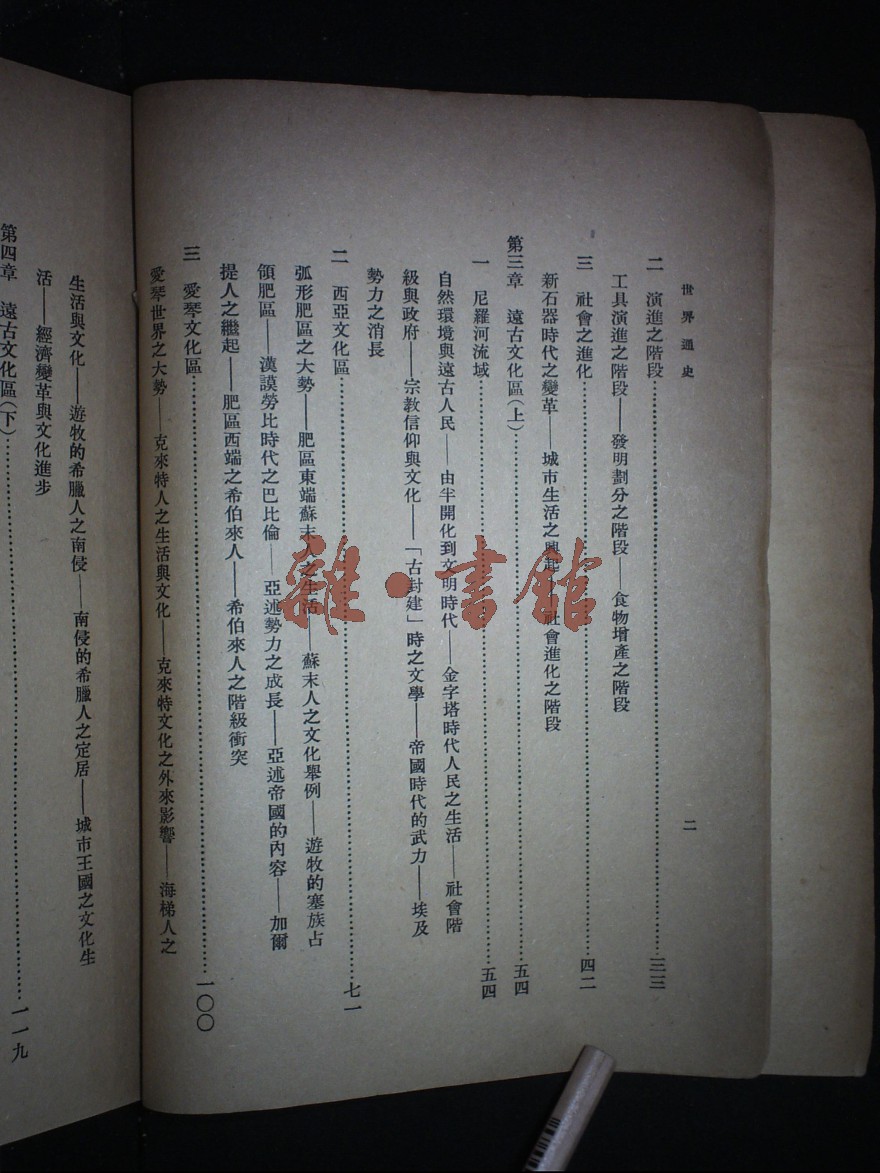 世界通史
二
二　演進之階段……三三
工具演進之階段——發明劃分之階段——食物增產之階段
三　社會之進化……四二
新石器時代之變革——城市生活之興起——社會進化之階段
第三章　遠古文化區(上)……五四
一　尼羅河流域……五四
自然環境與遠古人民——由半開化到文明時代——金字塔時代人民之生活——社會階
級與政府——宗教信仰與文化——「古封建」時之文學——帝國時代的武力——埃及
勢力之消長
二　西亞文化區……七一
弧形肥區之大勢——肥區東端蘇末人之生活——蘇末人之文化舉例——遊牧的塞族占
領肥區——漢謨勞比時代之巴比倫——亞述勢力之成長——亞述帝國的內容——加爾
提人之繼起——肥區西端之希伯來人——希伯來人之階級衝突
三　愛琴文化區……一〇〇
愛琴世界之大勢——克來特人之生活與文化——克來特文化之外來影響——海梯人之
生活與文化——遊牧的希臘人之南侵——南侵的希臘人之定居——城市王國之文化生
活——經濟變革與文化進步
第四章　遠古文化區(下)……一一九
雜·書館